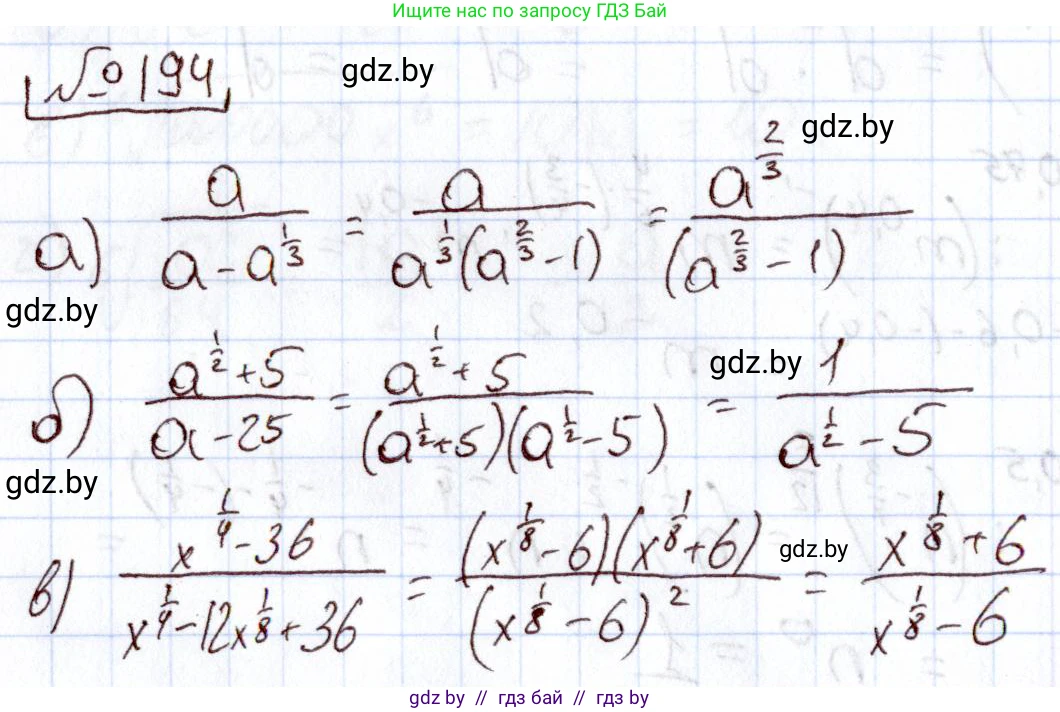 Ищите нас по запросу ГДЗ Бай
№194 gdz.by
gdz.by
а) a/(a - a^(1/3)) = a/(a^(1/3)(a^(2/3) - 1)) = a^(2/3)/(a^(2/3) - 1)
gdz.by
б) (a^(1/2) + 5)/(a - 25) = (a^(1/2) + 5)/((a^(1/2) + 5)(a^(1/2) - 5)) = 1/(a^(1/2) - 5)
gdz.by
gdz.by
в) (x^(1/4) - 36)/(x^(1/4) - 12x^(1/8) + 36) = ((x^(1/8) - 6)(x^(1/8) + 6))/(x^(1/8) - 6)^2 = (x^(1/8) + 6)/(x^(1/8) - 6)
gdz.by
gdz by // гдз бай // gdz by